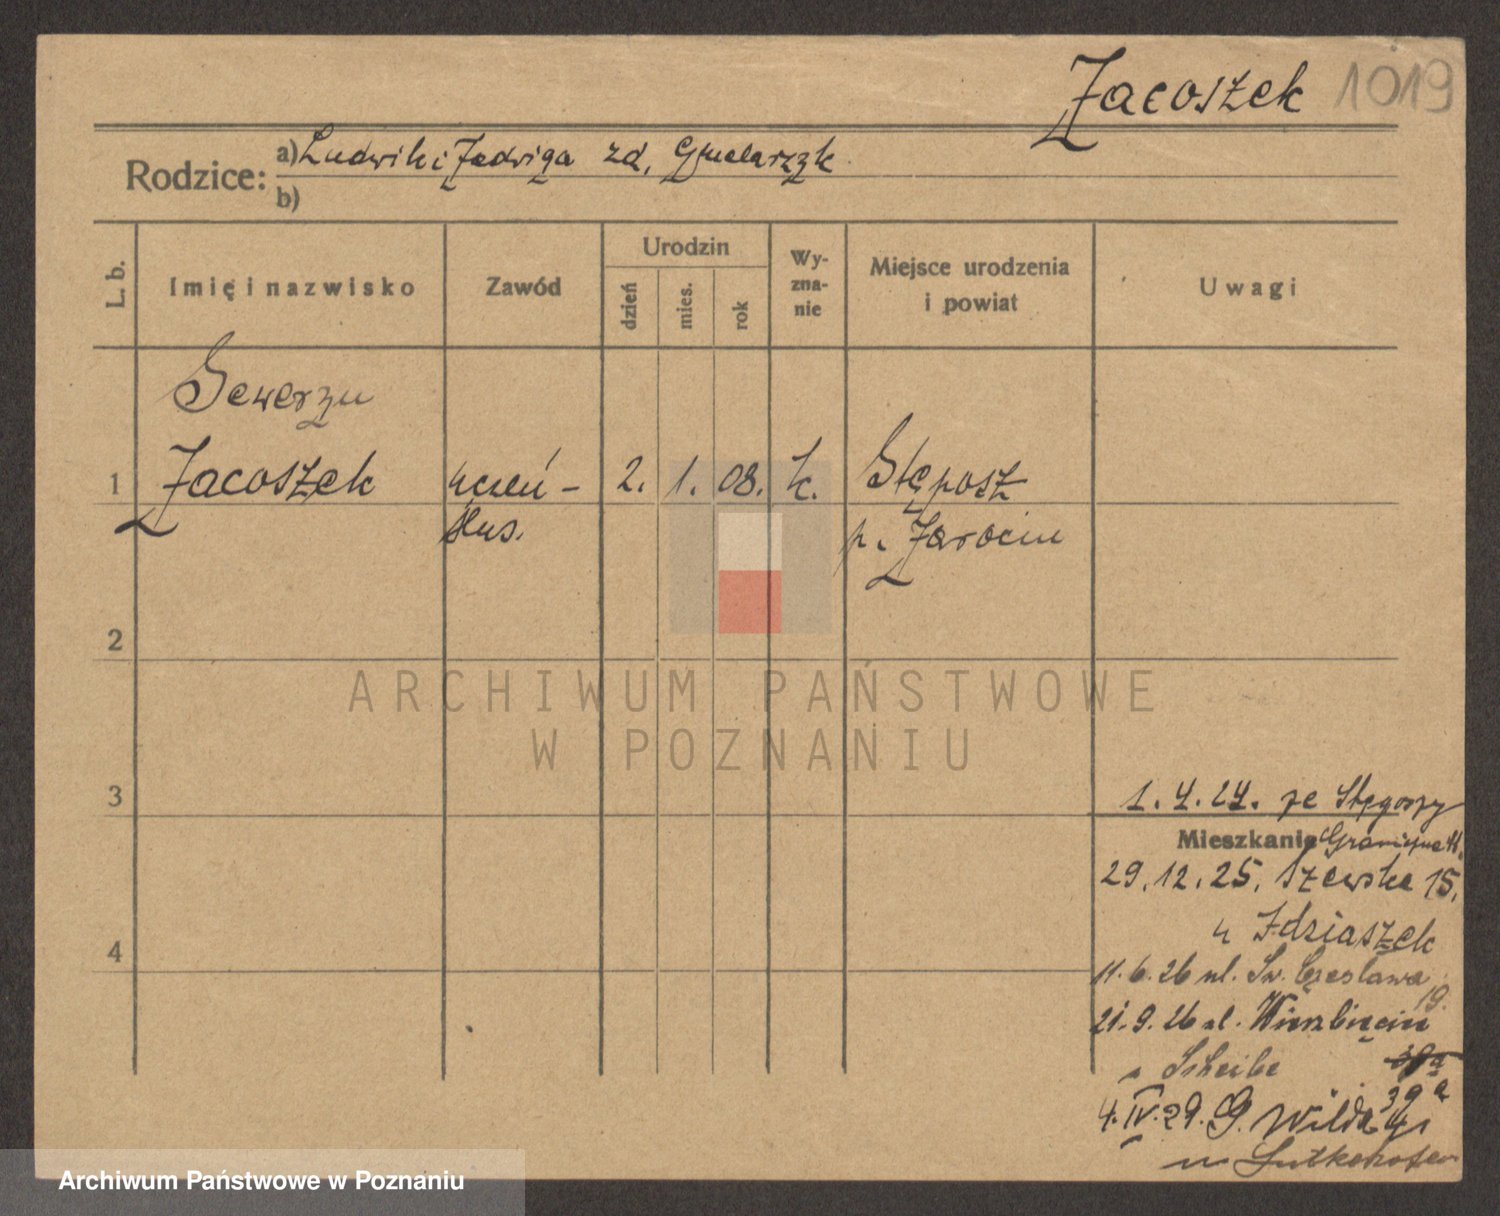 Jacoszek 1019
Rodzice:
a) Ludwik i Jadwiga zd.
b)
L. b.
Imię i nazwisko
Zawód
Urodzin
dzień
mies.
rok
Wy-
zna-
nie
Miejsce urodzenia
i powiat
Uwagi
Sewerzu
1 Jacoszek uczeń - 2. 1. 08. k. Stęgosz
ślus. p. Jarocin
2
ARCHIWUM PAŃSTWOWE
W POZNANIU
3
1. 4. 24. ze Stęgoszy
Mieszkanie Graniczna 11.
29. 12. 25. Szewska 15.
u Idziaszek
4
11. 6. 26 ul. Św. Czesława
19.
21. 9. 26 ul. Wierzbięcice
u Scheibe
39a
4. IV. 29. G. Wilda 41
u
Archiwum Państwowe w Poznaniu